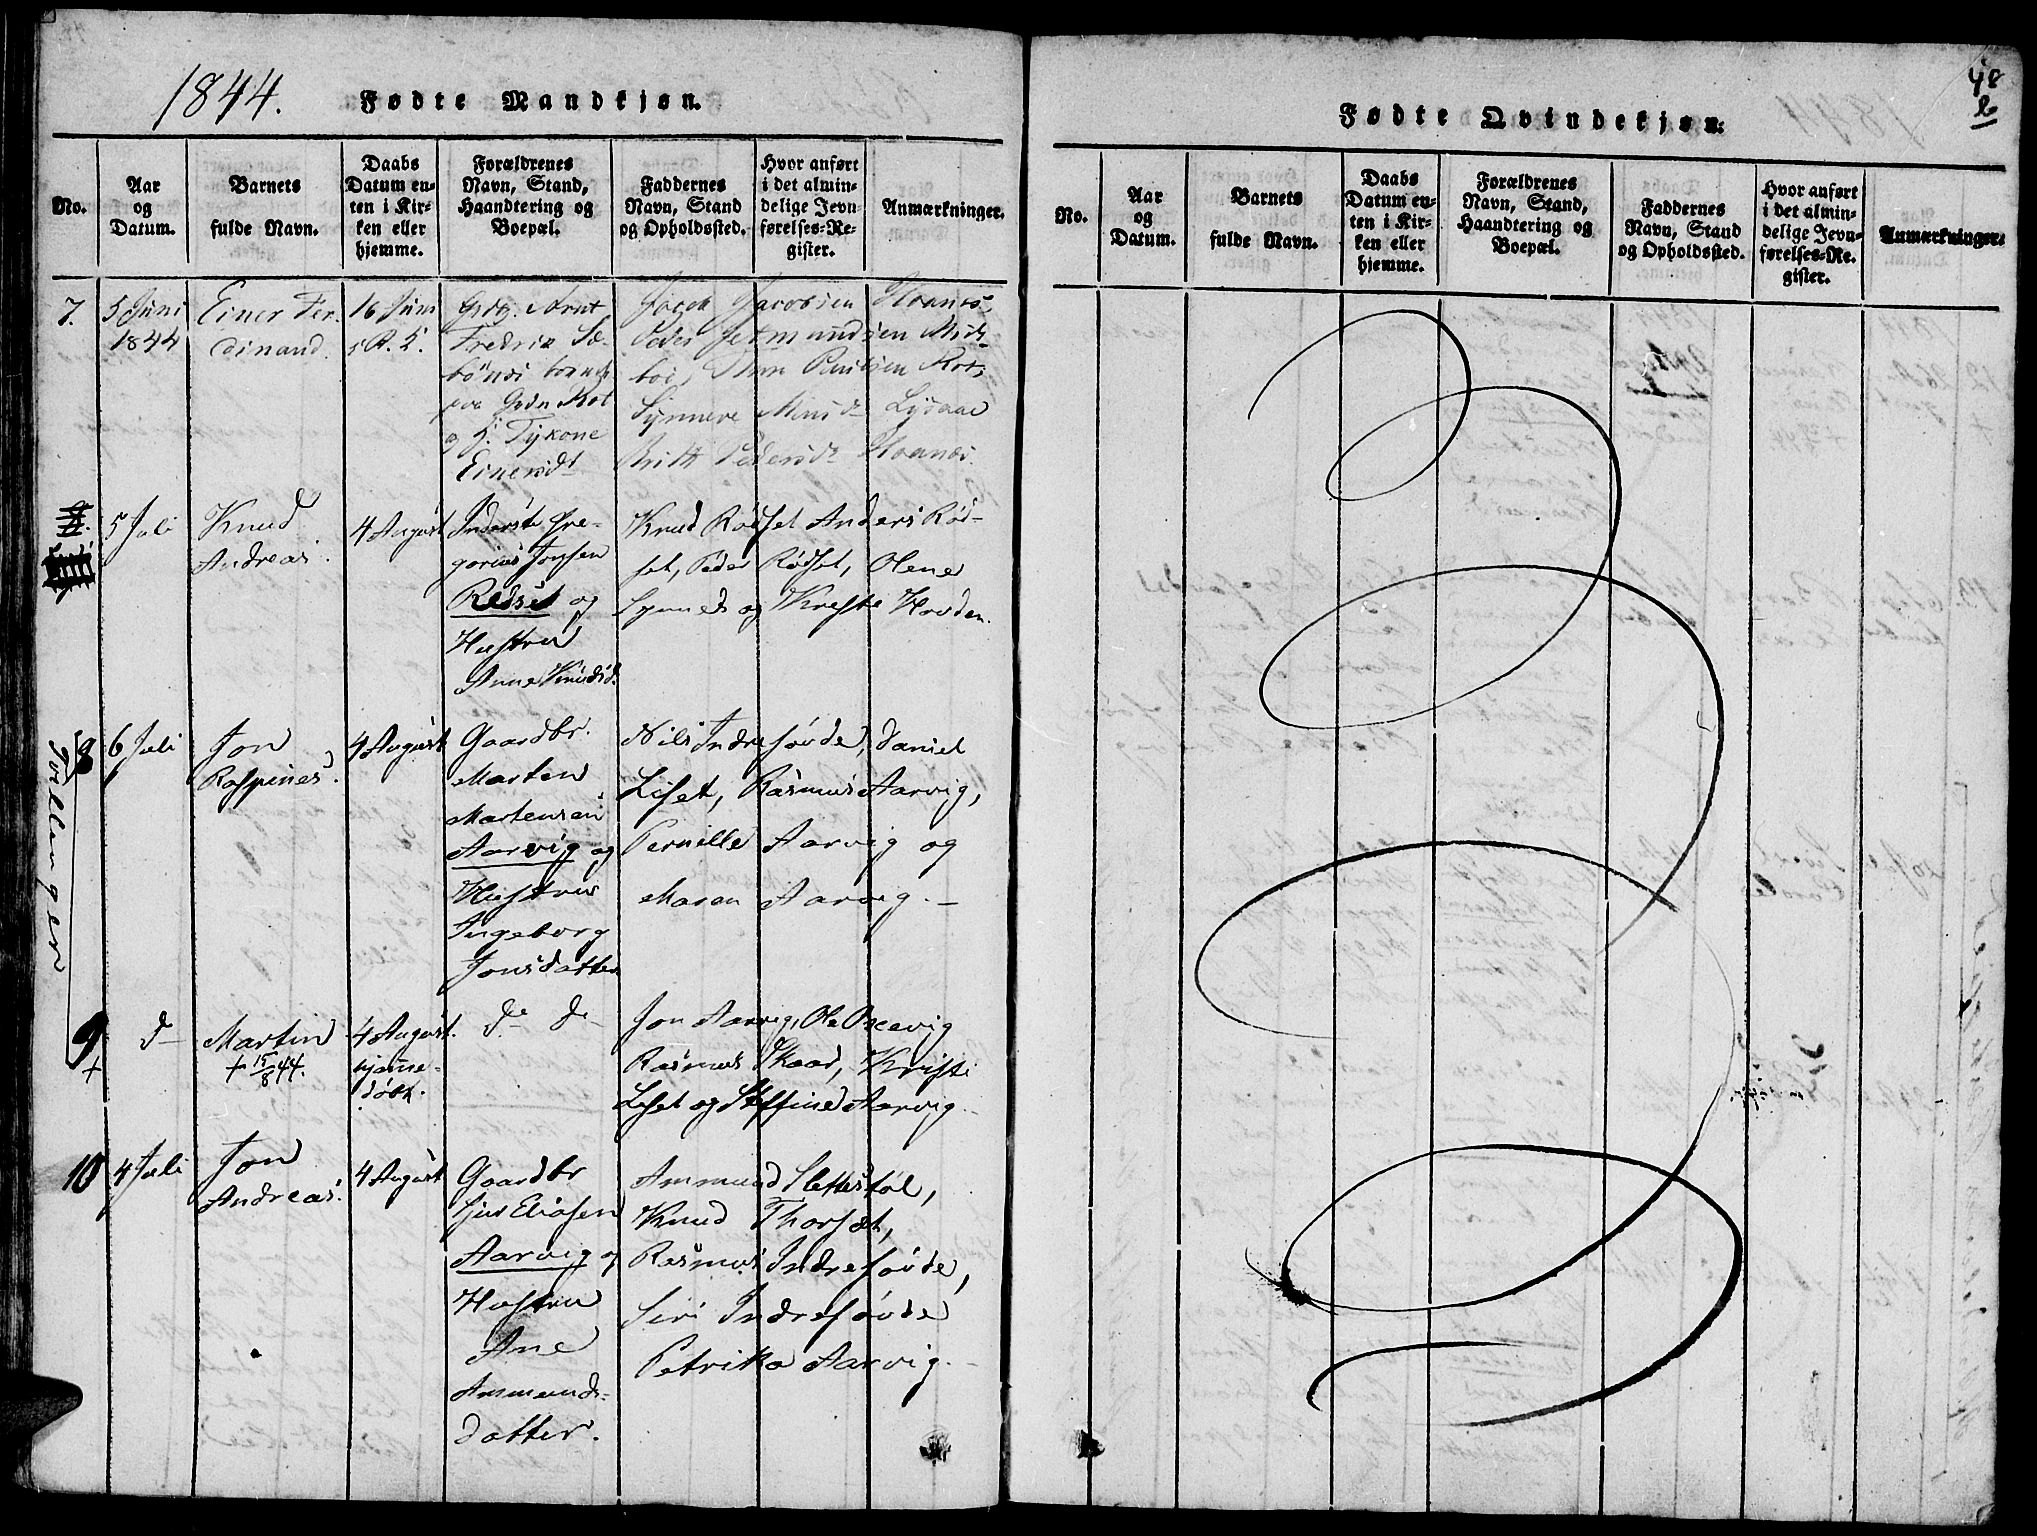 1844.
Fødte Mandkjøn.
No.
Aar
og
Datum.
Barnets
fulde Navn.
Daabs
Datum en-
ten i Kir-
ken eller
hjemme.
Forældrenes
Navn, Stand,
Haandtering og
Boepæl.
Faddernes
Navn, Stand
og Opholdssted.
Hvor anført
i det almin-
delige Jevn-
førelses-Re-
gister.
Anmærkninger.
7.
5 Juni
1844
Einer Fer-
dinand.
16 Juni
Arnt
Fredrik Sæ-
Tykone
Einersdt
Jacob Jacobsen
Peder Jetmundsen
Synneve Lysaae
Britt Pedersdt
5 Juli
Knud
Andreas.
4 August
Inderste Gre-
gorius
Redset og
Hustru
Anne Knudsd.
Knud Rødset Anders Rød-
set, Peder Rødset, Olene
Synnes og Kristi Hovden.
Tvillinger
8
6 Juli
Jon
Raspines.
4 August
Gaardbr.
Marten
Martensen
Aarvig og
Hustru
Ingeborg
Jonsdatter
Nils Indresøvde, Daniel
Liset, Rasmus Aarvig,
Pernille Aarvig og
Maren Aarvig. —
9
+
d—
Martin
+ 15/8 44.
4 August.
hjemme-
døbt.
do do
Jon Aarvig, Ole
Rasmus Skaar, Kristi
Liset og Steffine Aarvig.
10
4 Juli
Jon
Andreas.
4 August
Gaardbr
Eliasen
Aarvig og
Hustru
Ane
Ammunds-
datter.
Ammund Slettestøl,
Knud Thorset,
Rasmus Indresøvde,
Siri Indresøvde
Petrika Aarvig. —
48
b
Fødte Qvindekjøn.
No.
Aar
og
Datum.
Barnets
fulde Navn.
Daabs
Datum en-
ten i Kir-
ken eller
hjemme.
Forældrenes
Navn, Stand,
Haandtering og
Boepæl.
Faddernes
Navn, Stand
og Opholdssted.
Hvor anført
i det almin-
delige Jevn-
førelses-Re-
gister.
Anmærkninger.